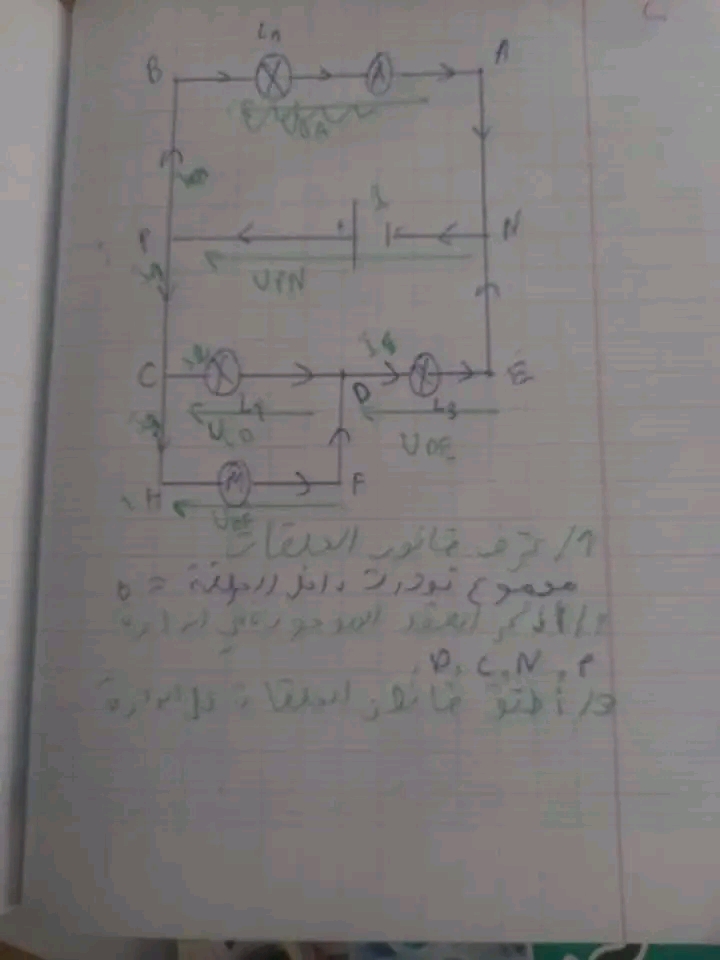 L1
B
A
A
UBA
P
N
UPN
C
D
E
L2
L3
UCD
UDE
H
M
F
1/ عرف قانون الحلقات
مجموع توترات داخل الحلقة = 0
2/ اذكر العقد الموجودة في الدارة
D, C, N, P
3/ أطبق قانون الحلقات